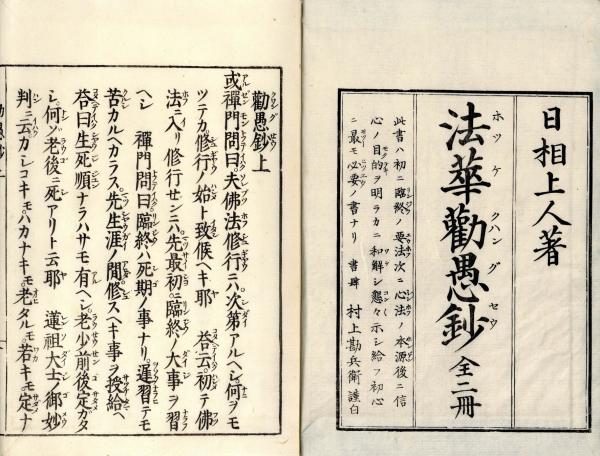 日相上人著
法華勸愚鈔 全二冊
ホツケクハングセウ
此書ハ初ニ臨終ノ要法次ニ心法ノ本源後ニ信
心ノ目的ヲ明ラカニ和解シ懇々示シ給フ初心
ニ最モ必要ノ書ナリ 書肆 村上勘兵衛謹白
勸愚鈔上
或禪門問曰夫佛法修行ニハ次第アルヘシ何ヲモ
ツテカ修行ノ始ト致候ヘキ耶 荅云初テ佛
法ニ入リ修行センニハ先最初ニ臨終ノ大事ヲ習
ヘシ 禪門問曰臨終ハ死期ノ事ナリ遲習テモ
苦カルヘカラス先生涯ノ間修スヘキ事ヲ授給ヘ
荅曰生死順ナラハサモ有ヘシ老少前後定カタ
シ何ソ老後ニ死アリト云耶 蓮祖大士ノ御妙
判ニ云カシコキモハカナキモ老タルモ若キモ定ナ